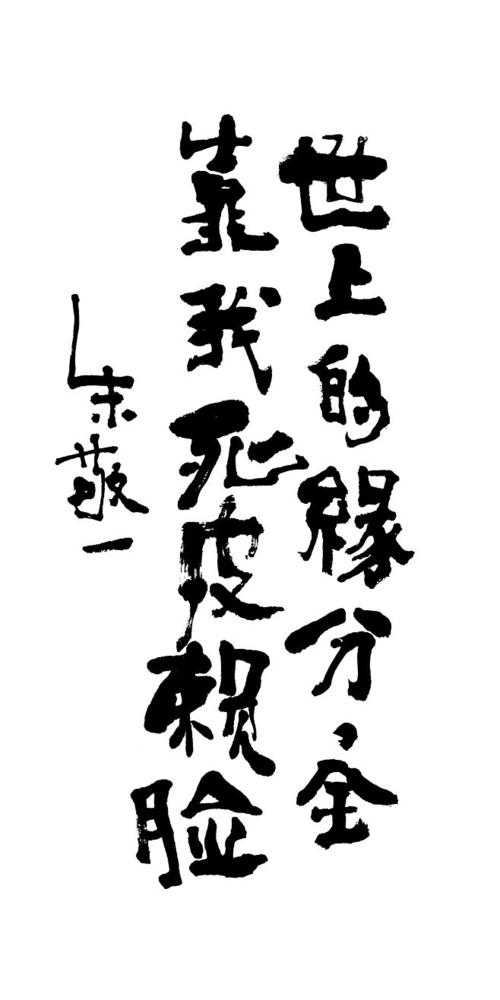 世上的緣分，全
靠我死皮赖脸
朱敬一